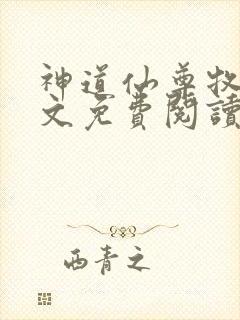 神道仙尊牧
文免費閱讀
西青之